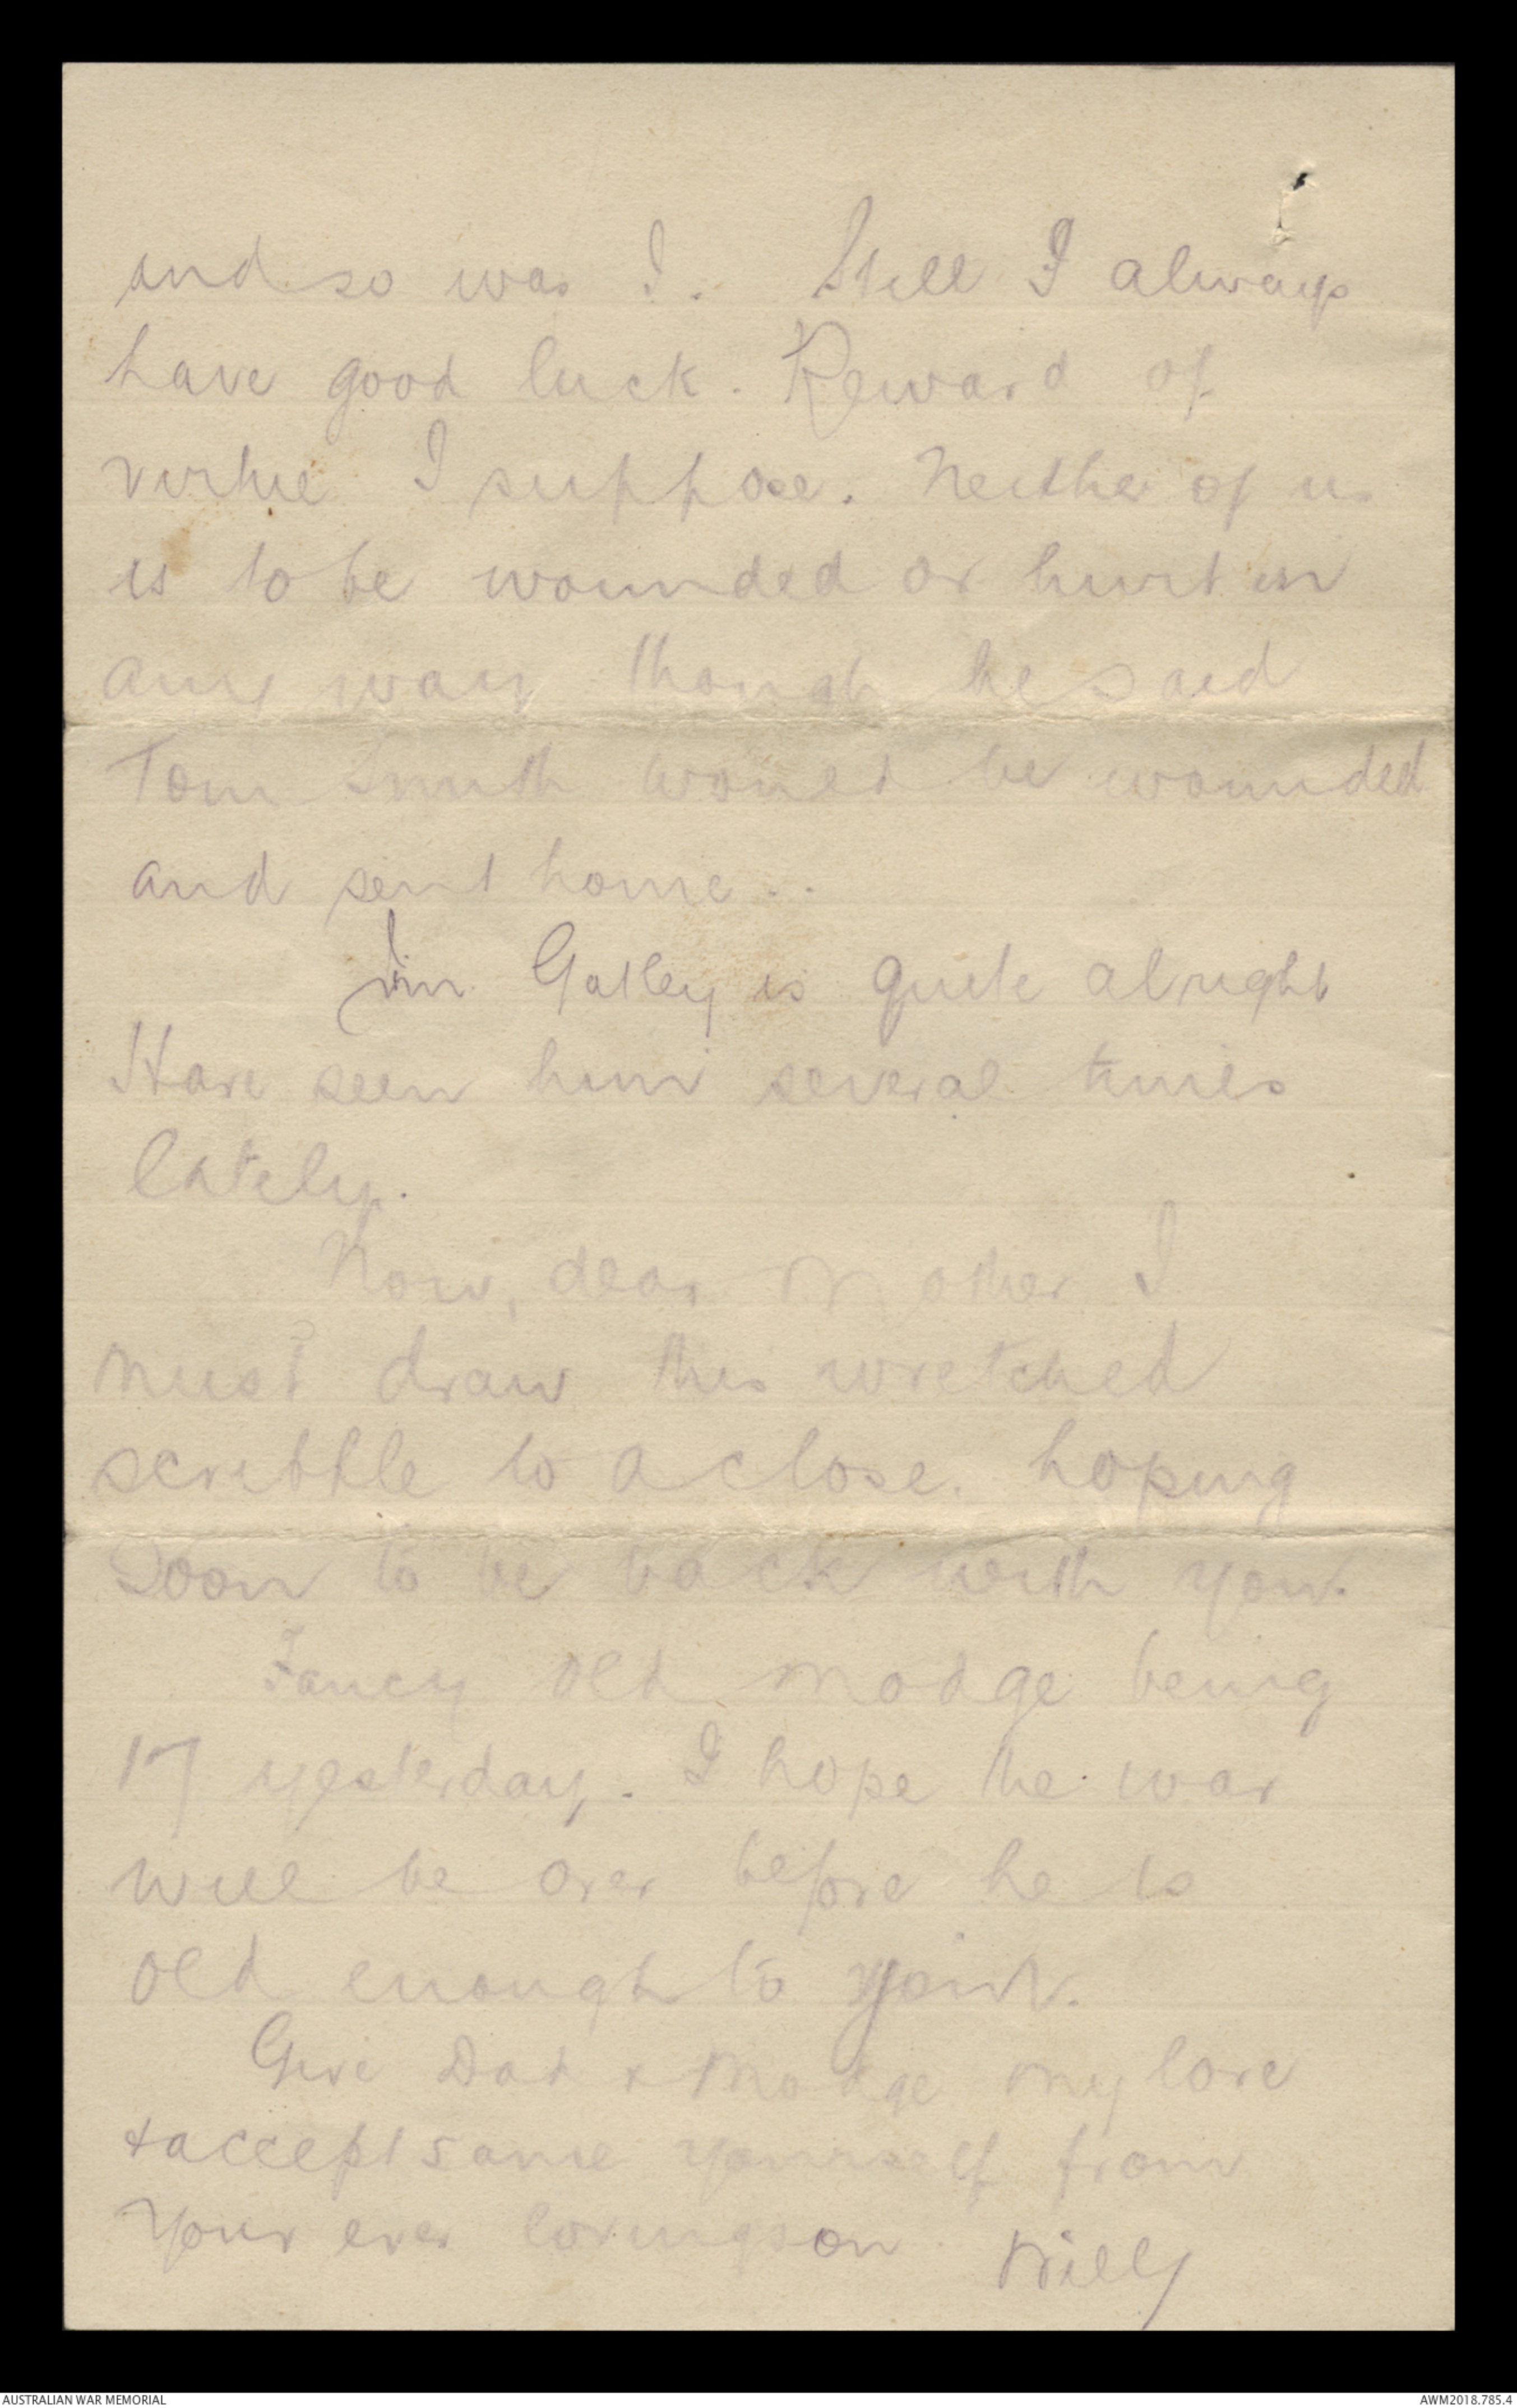 and so was I. Still I always
have good luck. Reward of
virtue I suppose. Neither of us
is to be wounded or hurt in
any way though he said
Tom Smith would be wounded
and sent home..
Jim Gatley is quite alright
Have seen him several times
lately.
Now, dear Mother I
must draw this wretched
scribble to a close. hoping
soon to be back with you.
Fancy old Modge being
17 yesterday. I hope the war
will be over before he is
old enough to join.
Give Dad & Modge my love
& accept same yourself from
Your ever loving son Willy
AUSTRALIAN WAR MEMORIAL
AWM2018.785.4